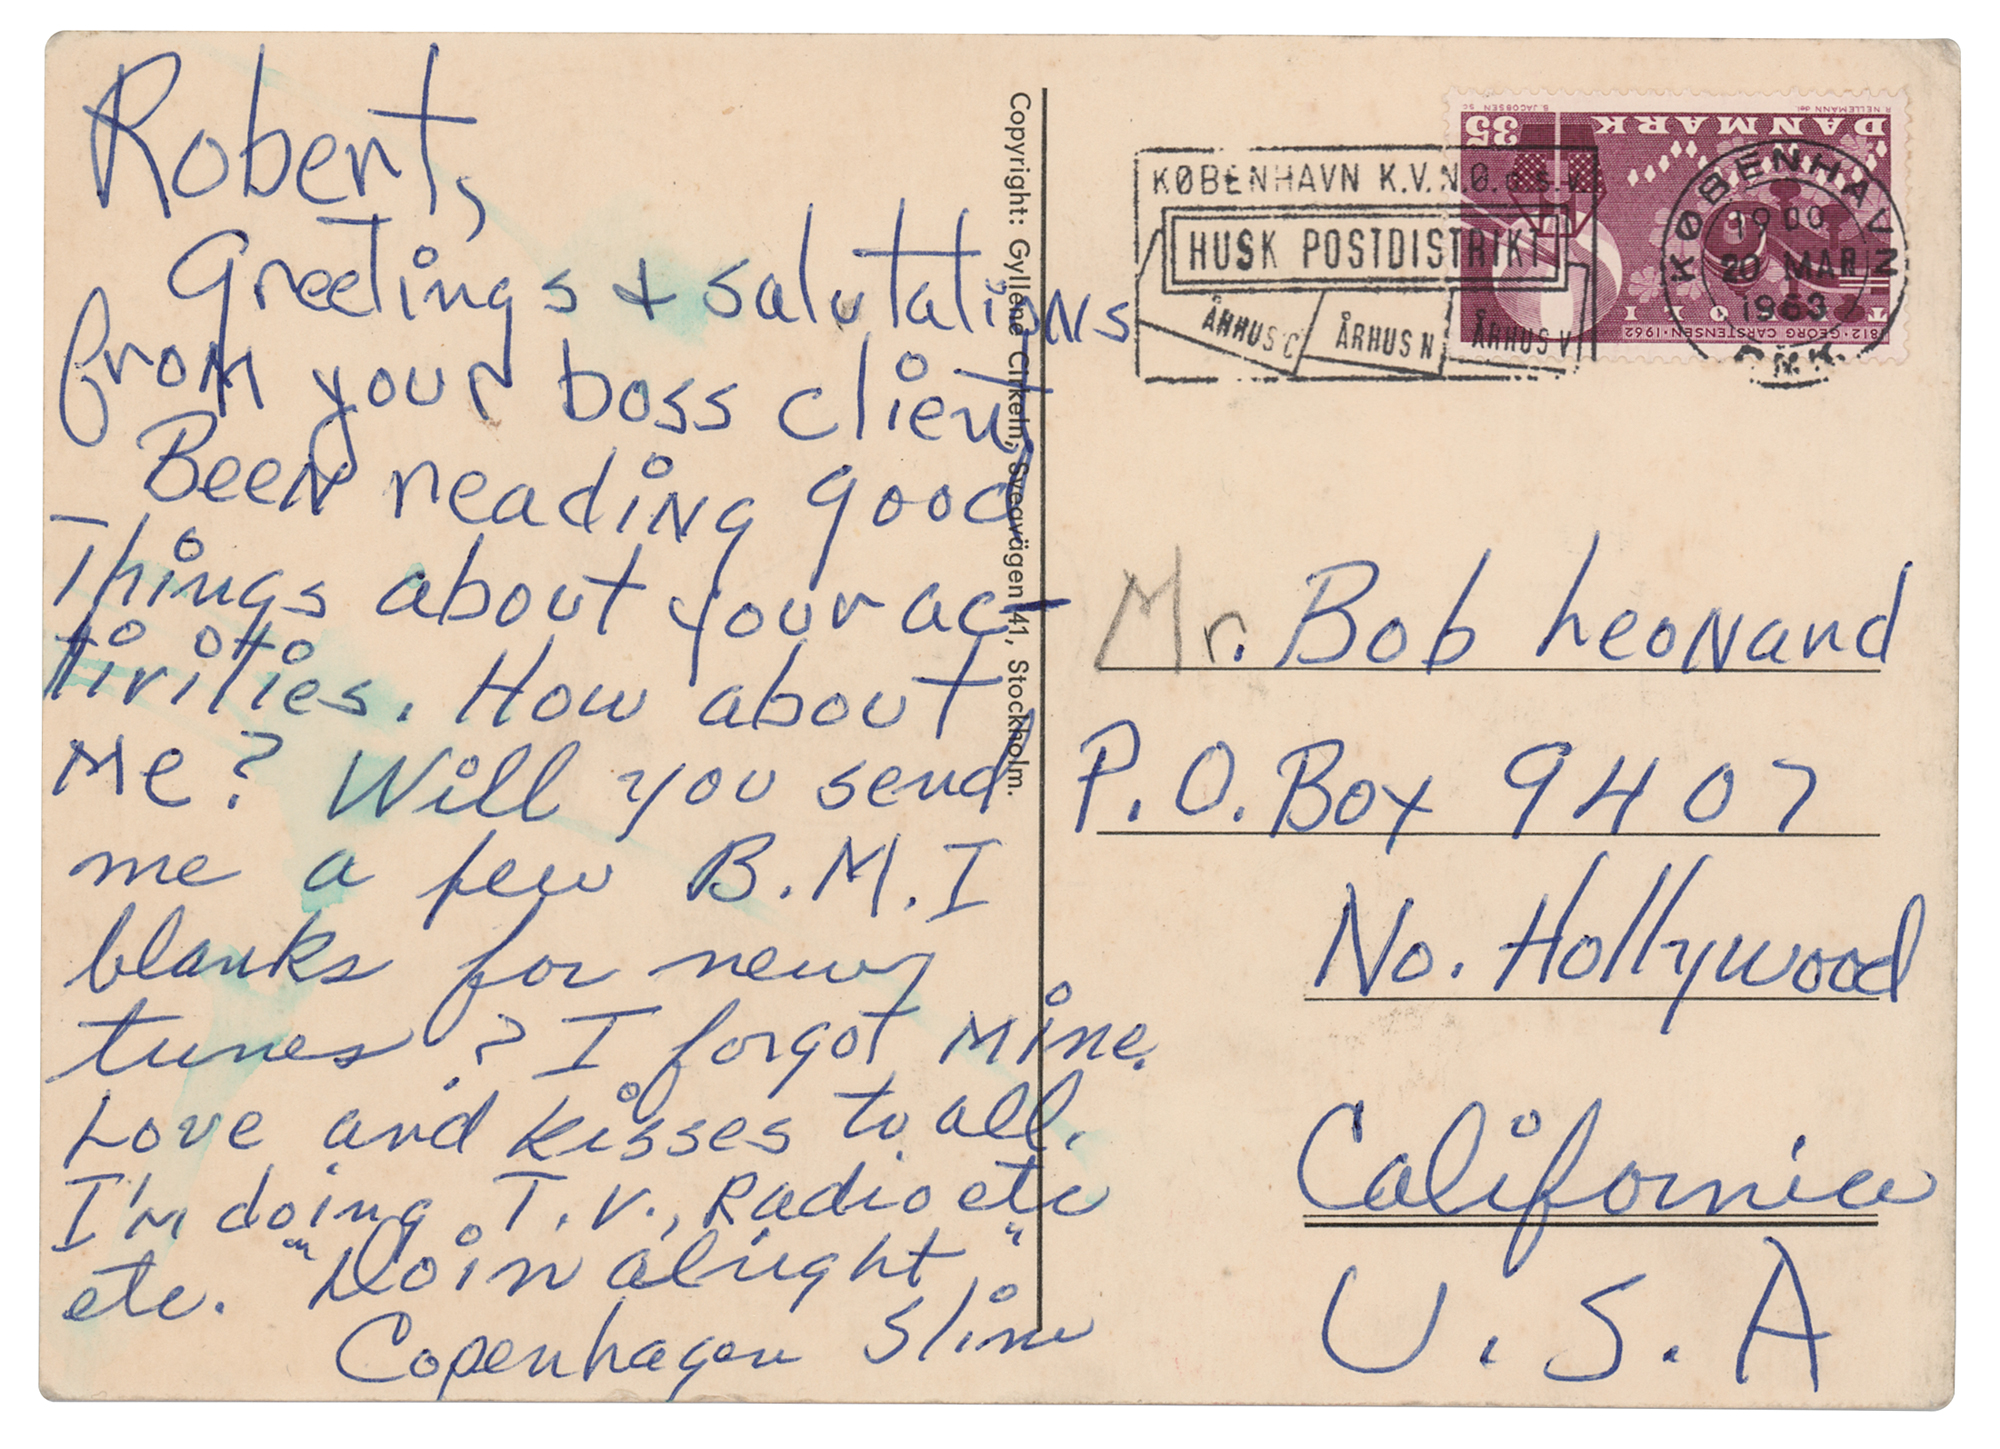 Robert,
Greetings + salutations
from your boss client,
Been reading good
Things about your ac-
tivities. How about
Me? Will you send
me a few B.M.I
blanks for new
tunes? I forgot mine.
Love and kisses to all.
I'm doing T.V., Radio etc
etc. "Doin alright"
Copenhagen Slim
Copyright: Gyllene Cirkeln, Sveavägen 41, Stockholm.
KØBENHAVN K.V.N.Ø.o.s.v.
HUSK POSTDISTRIKT
ÅRHUS C ÅRHUS N ÅRHUS V
KØBENHAVN
1900
20 MAR
1963
R. NELLEMANN del. B. JACOBSEN sc.
DANMARK 35
TIVOLI
1812 · GEORG CARSTENSEN · 1962
Mr. Bob Leonard
P.O. Box 9407
No. Hollywood
California
U.S.A